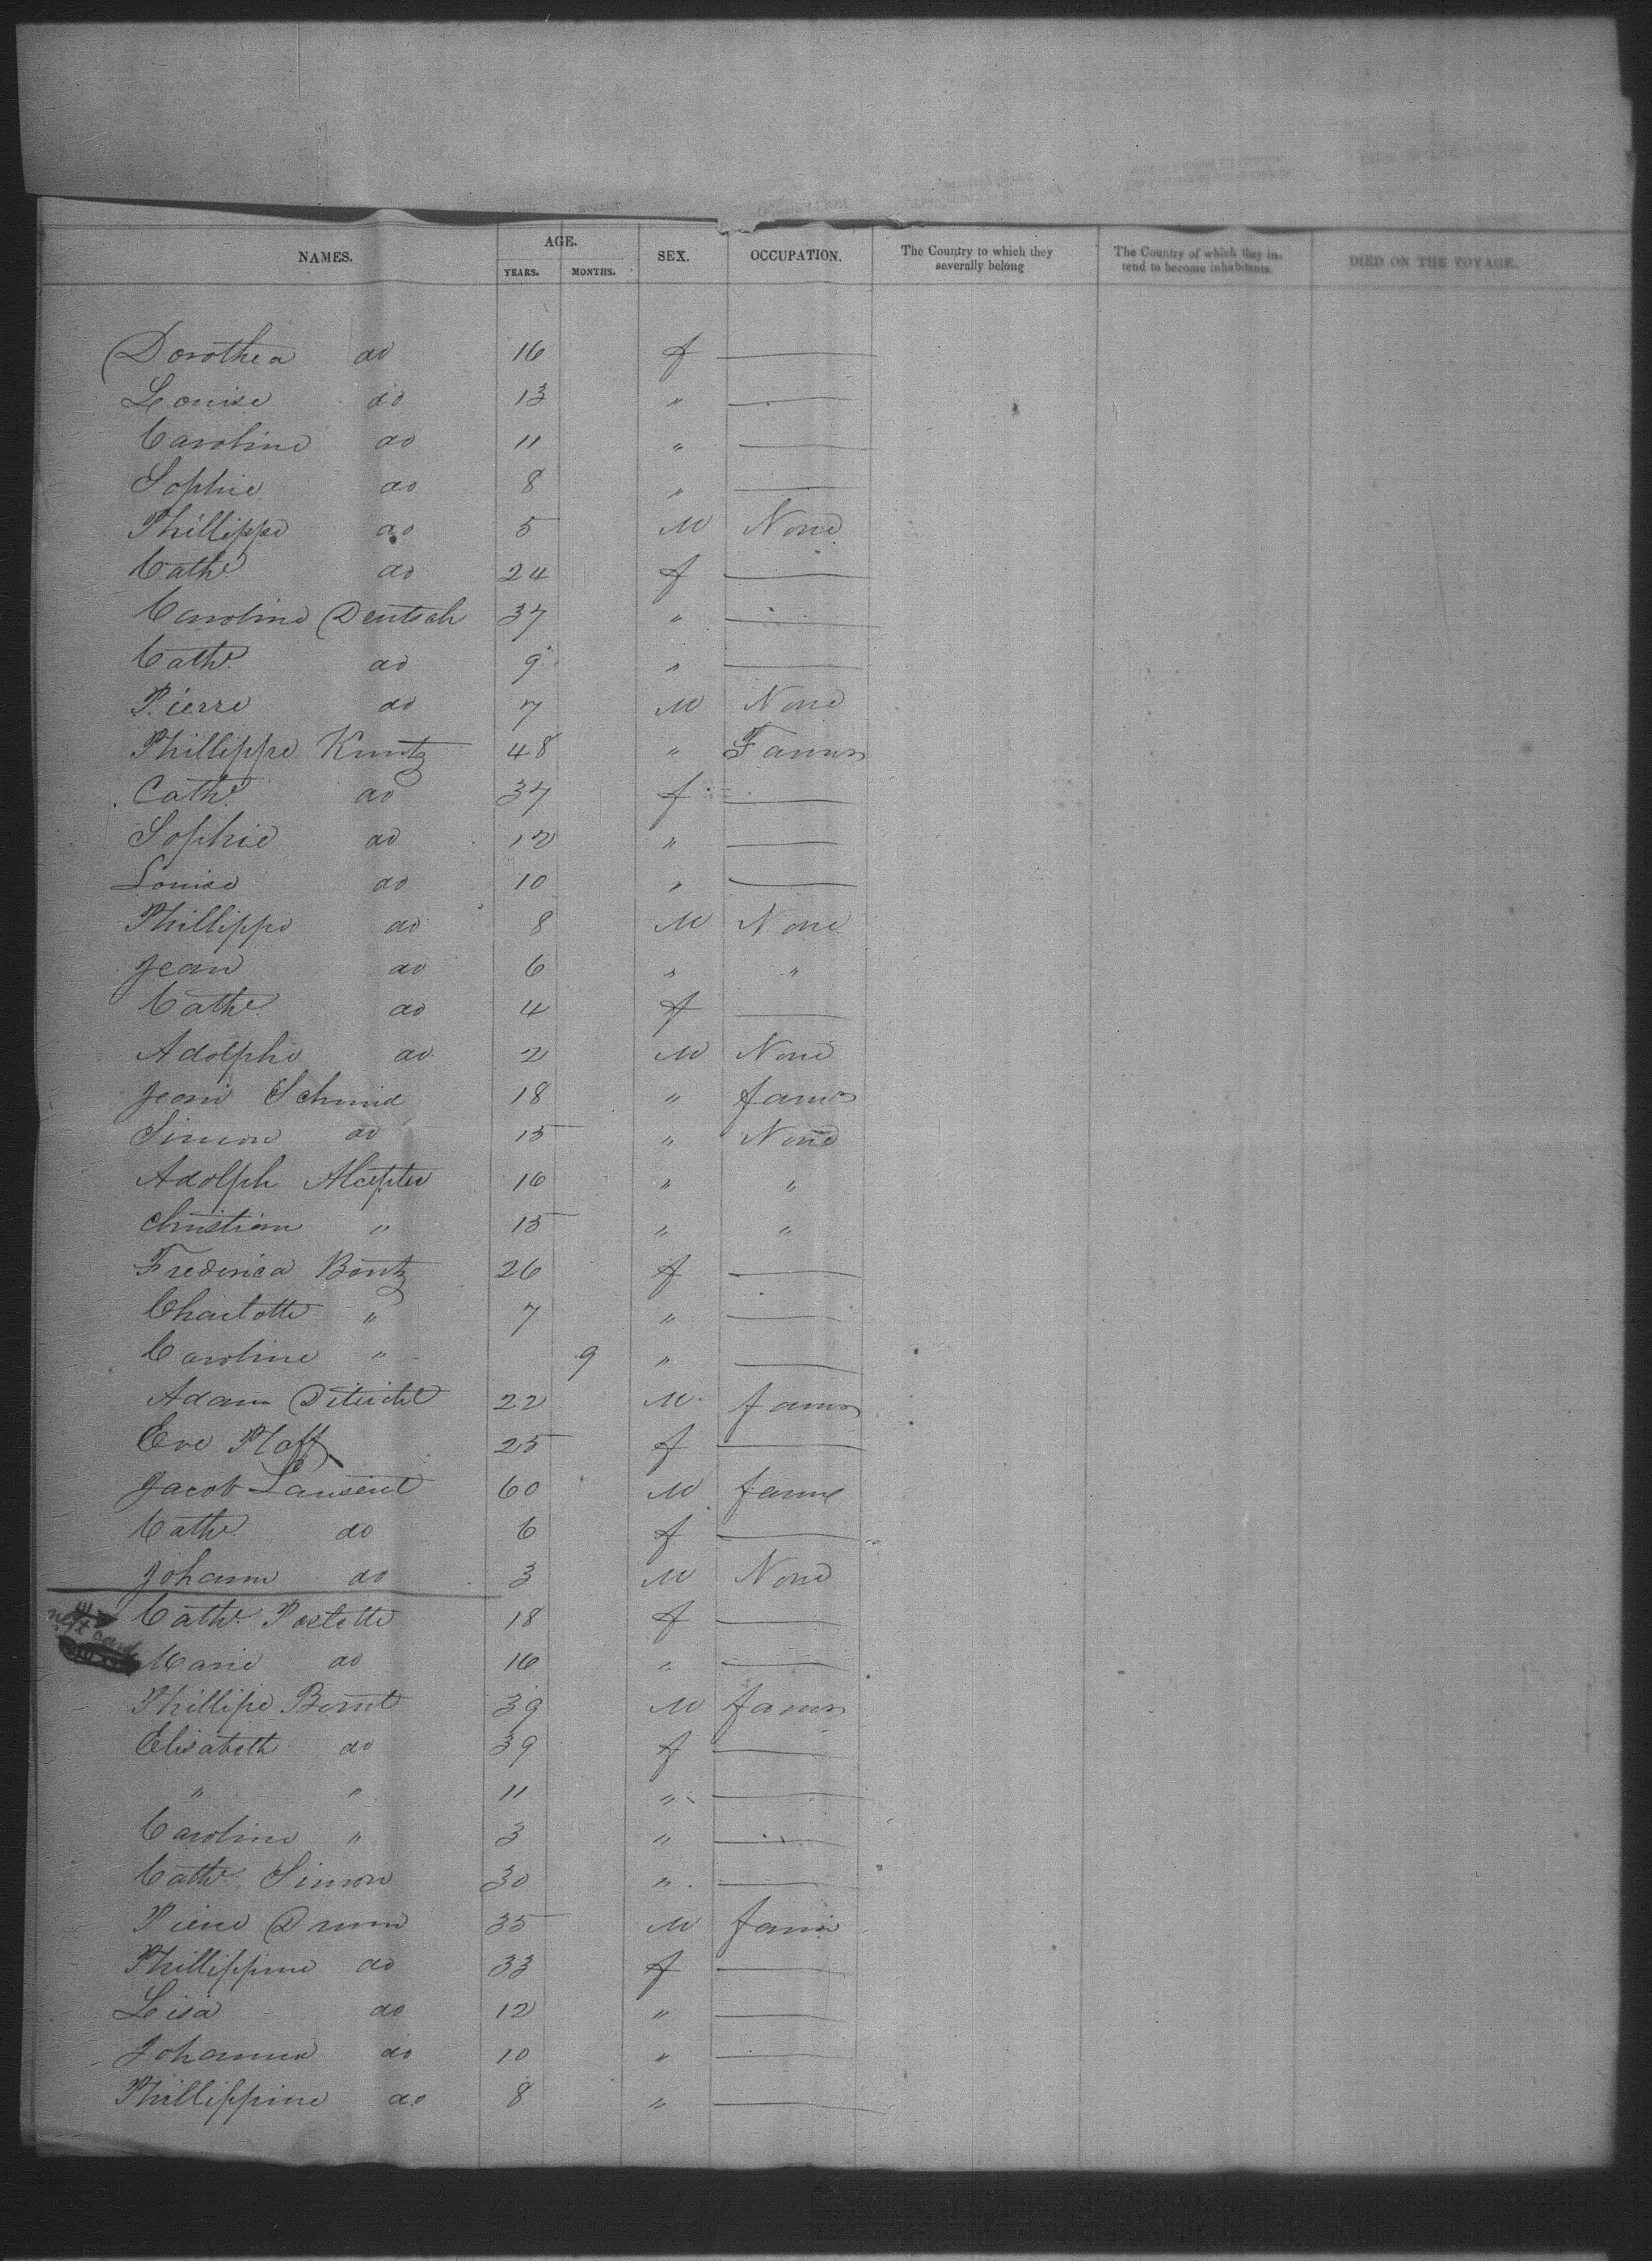 NAMES. AGE. YEARS. MONTHS. SEX. OCCUPATION. The Country to which they severally belong The Country of which they intend to become inhabitants. DIED ON THE VOYAGE.
Dorothea do 16 f
Louise do 13 "
Caroline do 11 "
Sophie do 8 "
Phillippe do 5 M None
Cathe do 24 f
Caroline Deutsch 37 "
Cathe do 9 "
Pierre do 7 M None
Phillippe Kuntz 48 " Farmer
Cathe do 37 f
Sophie do 12 "
Louise do 10 "
Phillippe do 8 M None
Jean do 6 " "
Cathe do 4 f
Adolphe do 2 M None
Jean Schmid 18 " farmer
Simon do 15 " None
Adolph 16 " "
Christian " 15 " "
Frederica Bontz 26 f
Charlotte " 7 "
Caroline " 9 "
Adam 22 M farmer
Eve Pfaff 25 f
Jacob 60 M farmer
Cathe do 6 f
Johann do 3 M None
next card
Cathe 18 f
Marie do 16 "
Phillipe 39 M farmer
Elisabeth do 39 f
" " 11 "
Caroline " 3 "
Cathe Simon 30 "
Pierre Drum 35 M farmer
Phillippine do 33 f
Lisa do 12 "
Johanna do 10 "
Phillippine do 8 "